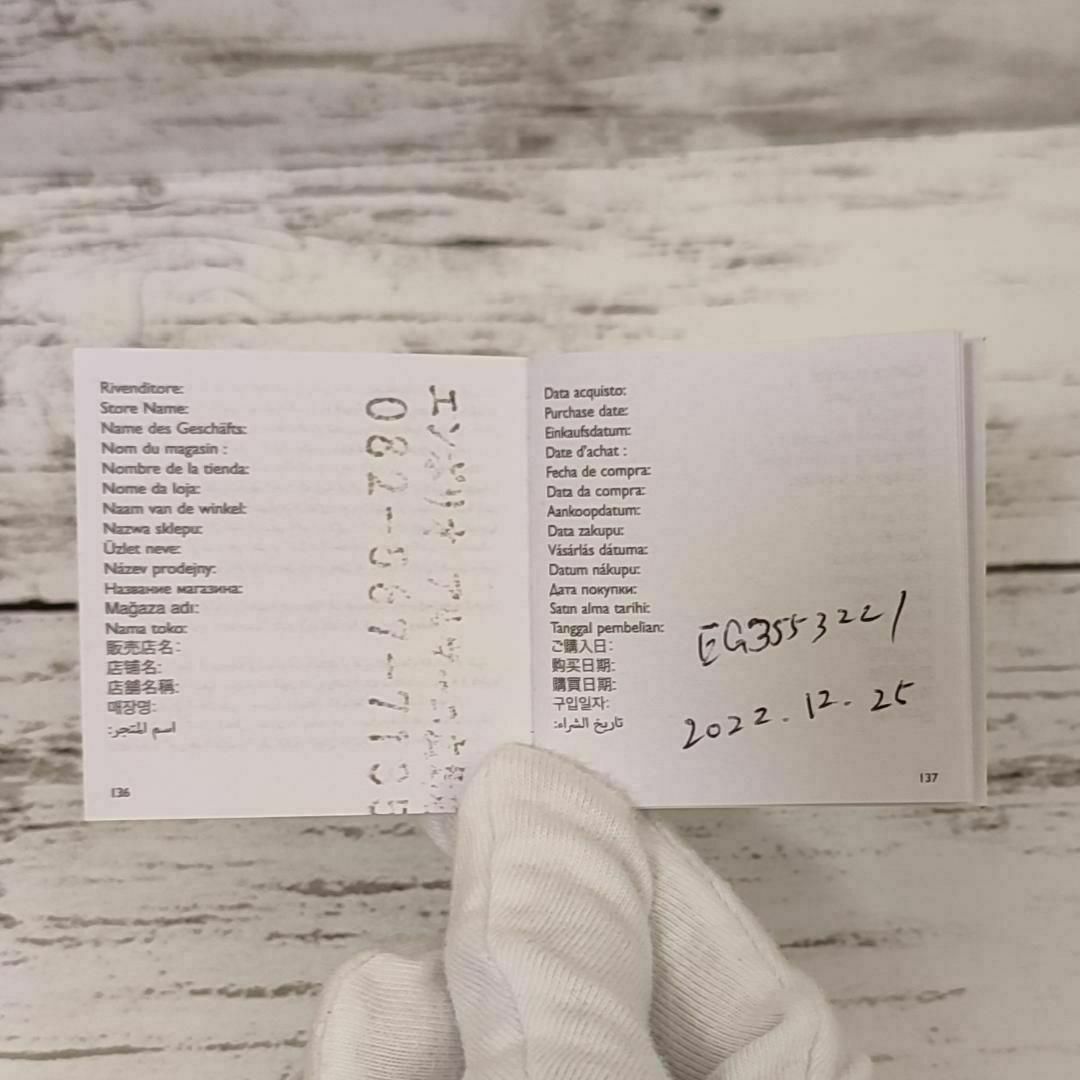 Rivenditore:
Store Name:
Name des Geschäfts:
Nom du magasin :
Nombre de la tienda:
Nome da loja:
Naam van de winkel:
Nazwa sklepu:
Üzlet neve:
Název prodejny:
Название магазина:
Mağaza adı:
Nama toko:
販売店名:
店铺名:
店舗名稱:
매장명:
اسم المتجر:
136
Data acquisto:
Purchase date:
Einkaufsdatum:
Date d'achat :
Fecha de compra:
Data da compra:
Aankoopdatum:
Data zakupu:
Vásárlás dátuma:
Datum nákupu:
Дата покупки:
Satın alma tarihi:
Tanggal pembelian:
ご購入日:
购买日期:
購買日期:
구입일자:
تاريخ الشراء:
EG3553221
2022.12.25
137